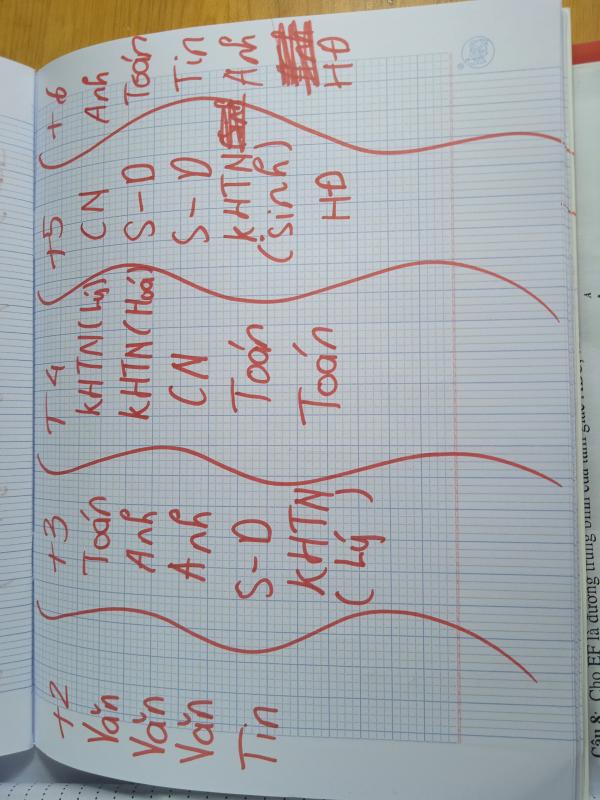 T2
Văn
Văn
Văn
Tin
T3
Toán
Anh
Anh
S-D
KHTN
(Lý)
T4
KHTN(Lý)
KHTN(Hoá)
CN
Toán
Toán
T5
CN
S-D
S-D
KHTN
(Sinh)
HĐ
T6
Anh
Toán
Tin
Anh
HĐ
Câu 8: Cho EF là đường trung bình của tam giác